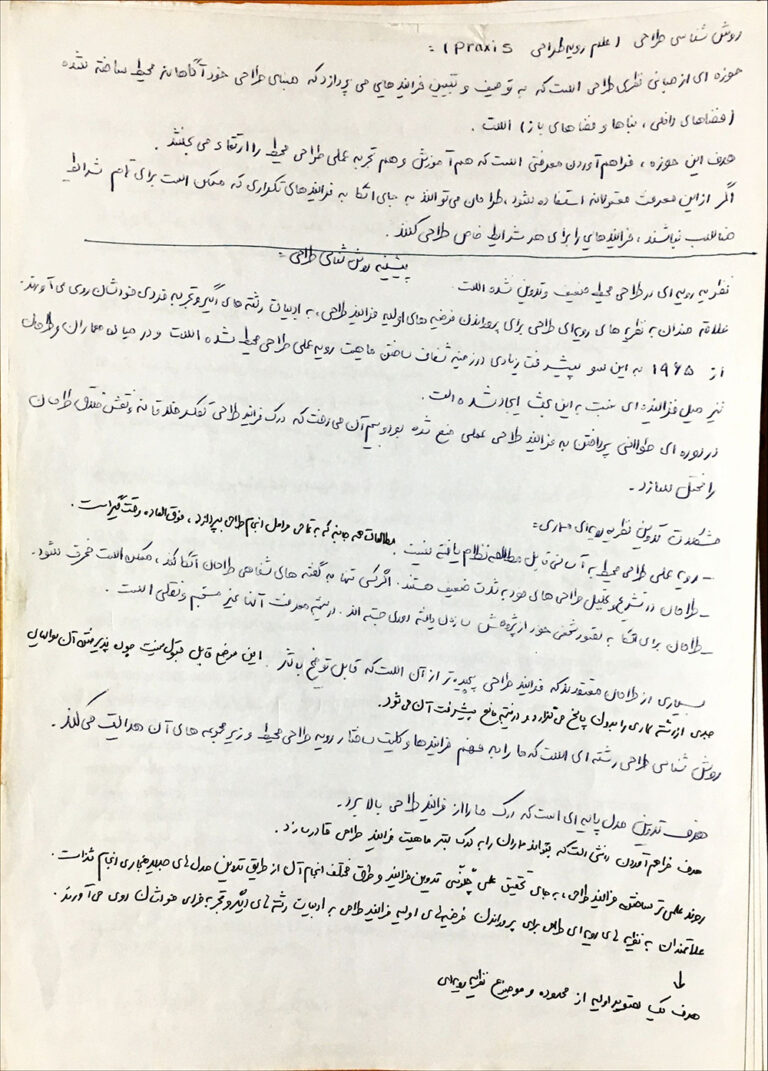 روش شناسی طراحی (علم رویه طراحی Praxis) =
حوزه ای از مبانی نظری طراحی است که به توصیف و تبیین فرایندهایی می پردازد که مبنای طراحی خودآگاهانه محیط ساخته شده
(فضاهای داخلی، بناها و فضاهای باز) است.
هدف این حوزه، فراهم آوردن معرفتی است که هم آموزش و هم تجربه عملی طراحی محیط را ارتقاء می بخشد.
اگر از این معرفت معقولانه استفاده شود، طراحان می توانند به جای اتکا به فرایندهای تکراری که ممکن است برای تمام شرایط
مناسب نباشند، فرایندهایی را برای هر شرایط خاص طراحی کنند.
پیشینه روش شناسی طراحی =
نظریه رویه ای در طراحی محیط ضعیف و تدوین نشده است.
علاقه مندان به نظریه های رویه ای طراحی برای پروراندن فرضیه های اولیه فرایند طراحی، به ادبیات رشته های دیگر و تجربه فردی خودشان روی می آورند.
از ۱۹۶۵ به این سو پیشرفت زیادی در زمینه شفاف ساختن ماهیت رویه عملی طراحی محیط شده است و در میان معماران و طراحان
نیز میل فزاینده ای نسبت به این بحث ایجاد شده است.
در دوره ای طولانی پرداختن به فرایند طراحی عملی منع شده بود و بیم آن می رفت که درک فرایند طراحی تفکر خلاقانه و نقش خلاق طراحان
را مختل سازد.
مشکلات تدوین نظریه رویه ای معماری =
- رویه عملی طراحی محیط به آسانی قابل مطالعه نظام یافته نیست. مطالعات همه جانبه که به تمامی مراحل انجام طراحی بپردازد، فوق العاده وقت گیر است.
- طراحان در تشریح و تحلیل طراحی های خود به شدت ضعیف هستند. اگر کسی تنها به گفته های شفاهی طراحان اتکا کند، ممکن است منحرف شود.
- طراحان برای اتکا به تصور شخصی خود از پژوهش سازمان یافته دوری جسته اند. در نتیجه معرفت آنها غیر مستقیم و نقلی است.
بسیاری از طراحان معتقدند که فرایند طراحی پیچیده تر از آن است که قابل توضیح باشد. این موضع قابل قبول نیست چون پذیرفتن آن سوالهای
جدی از رشته معماری را بدون پاسخ می گذارد و در نتیجه مانع پیشرفت آن می شود.
روش شناسی طراحی رشته ای است که ما را به فهم فرایندها و کلیت ساختار رویه طراحی محیط و زیرمجموعه های آن هدایت می کند.
هدف تدوین مدل پایه ای است که درک ما را از فرایند طراحی بالا ببرد.
هدف فراهم آوردن دانشی است که بتواند معماران را به درک بهتر ماهیت فرایند طراحی قادر سازد.
روند علمی تر ساختن فرایند طراحی، به جای تحقیق علمی چگونگی تدوین فرایند و طرق مختلف انجام آن از طریق تدوین مدل های جدید هنجاری انجام شده است.
علاقمندان به نظریه های رویه ای طراحی برای پروراندن فرضیه های اولیه فرایند طراحی به ادبیات رشته های دیگر و تجربه فردی خودشان روی می آورند.
↓
هدف یک تصویر اولیه از محدوده و موضوع نظریه رویه ای